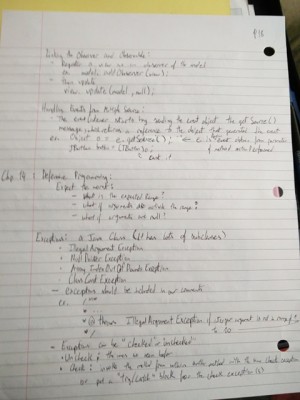 P16
Linking the Observer and Observable:
- Register a view as an observer of the model
ex. model.addObserver(view);
- Then update
view.update(model, null);
Handling Events from Multiple Sources:
- The event listener starts by sending the event object the getSource()
message, which returns a reference to the object that generated the event
ex. Object o = e.getSource(); ← e is event
JButton button = (JButton) o;
↑ cast it
Chp. 14: Defensive Programming:
Expect the worst:
- what is the expected range?
- what if arguments are outside the range?
- what if arguments are null?
Exceptions: a Java Class (it has lots of subclasses)
- Illegal Argument Exception
- Null Pointer Exception
- Array Index Out Of Bounds Exception
- Class Cast Exception
- exceptions should be included in our comments
ex. /**
*
* @throws IllegalArgumentException if integer argument is not in range
*/
- Exceptions can be "checked" or "unchecked"
- Uncheck: the ones we seen before
- Check: invoke the method from within another method with the same check exception
or put a "try/catch" block for the check exception(s)